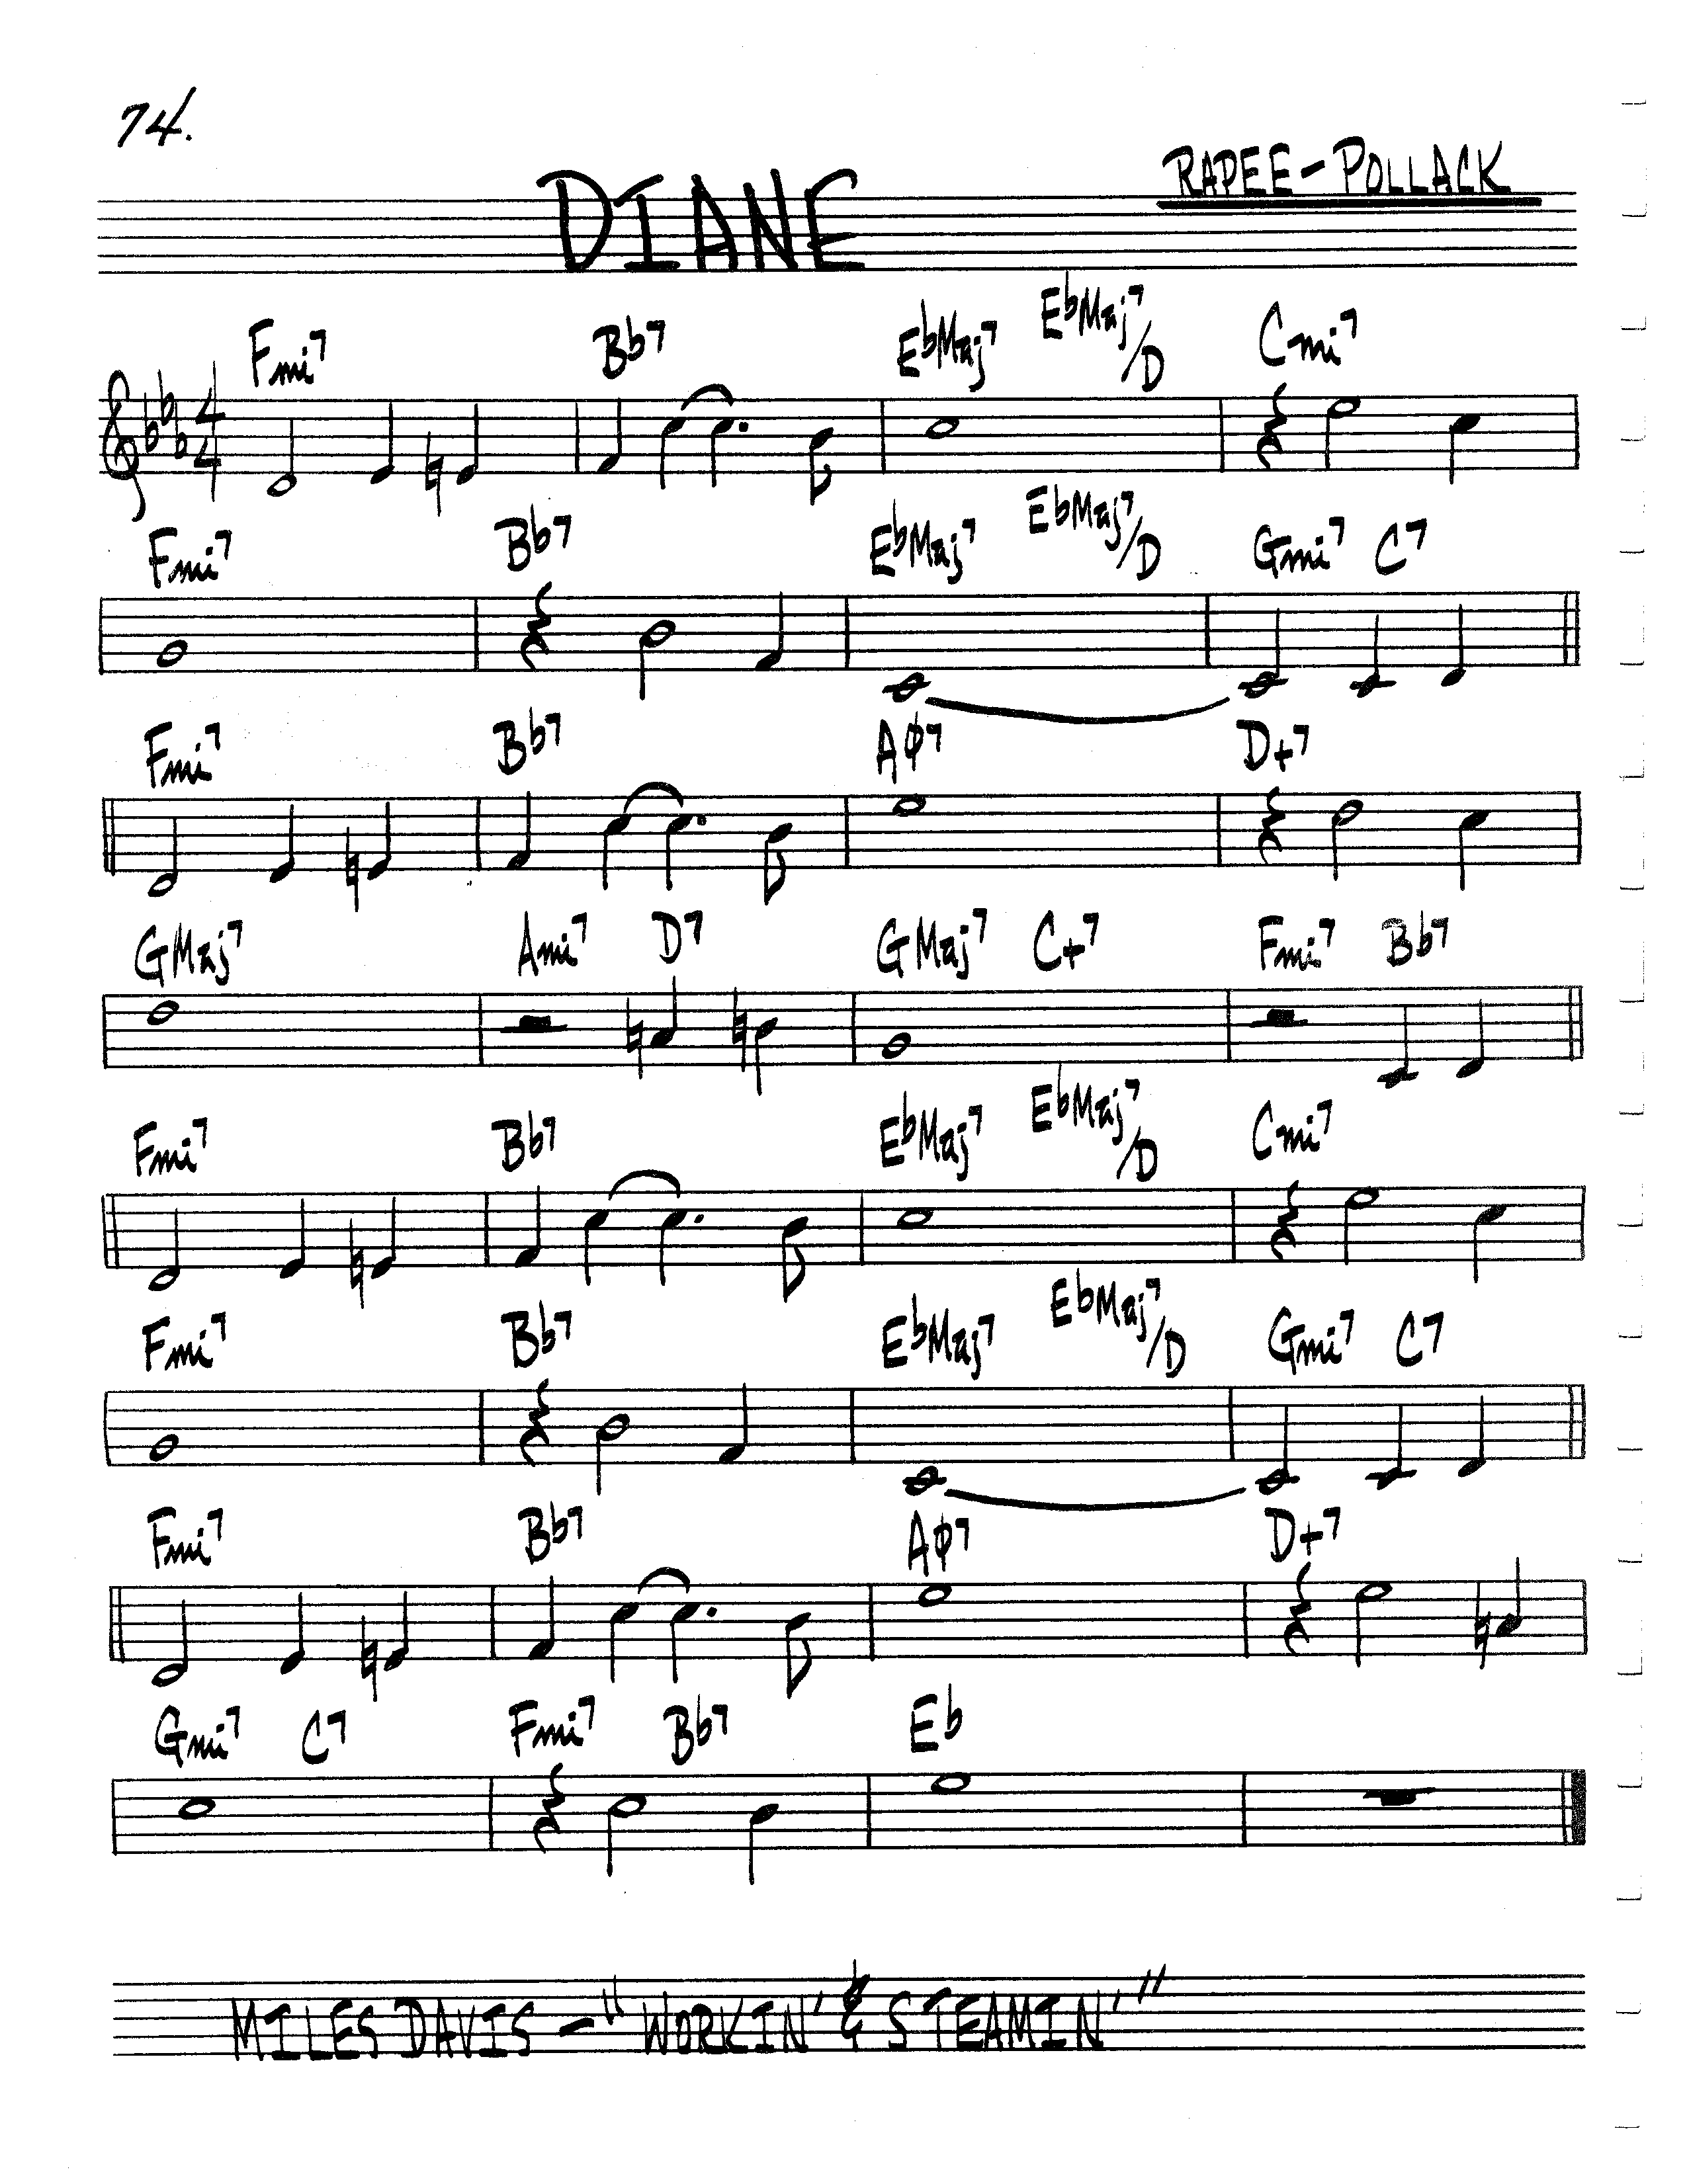 74.
RAPEE-POLLACK
DIANE
Fmi7 Bb7 EbMaj7 EbMaj7/D Cmi7
4/4
Fmi7 Bb7 EbMaj7 EbMaj7/D Gmi7 C7
Fmi7 Bb7 Aø7 D+7
GMaj7 Ami7 D7 GMaj7 C+7 Fmi7 Bb7
Fmi7 Bb7 EbMaj7 EbMaj7/D Cmi7
Fmi7 Bb7 EbMaj7 EbMaj7/D Gmi7 C7
Fmi7 Bb7 Aø7 D+7
Gmi7 C7 Fmi7 Bb7 Eb
MILES DAVIS - "WORKIN' & STEAMIN'"